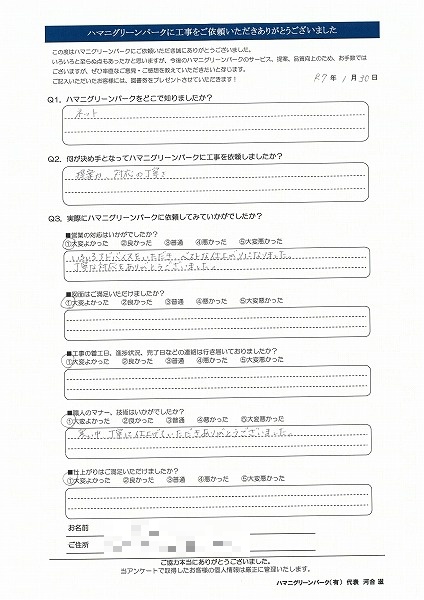 ハマニグリーンパークに工事をご依頼いただきありがとうございました
この度はハマニグリーンパークにご依頼いただき誠にありがとうございました。
いろいろと至らぬ点もあったかと思いますが、今後のハマニグリーンパークのサービス、提案、品質向上のため、お手数では
ございますが、ぜひ率直なご意見・ご感想を教えていただきたいと存じます。
ご記入いただいたお客様には、図書券をプレゼントさせていただきます！
R7年 1月30日
Q1. ハマニグリーンパークをどこで知りましたか？
ネット
Q2. 何が決め手となってハマニグリーンパークに工事を依頼しましたか？
提案力、対応の丁寧さ
Q3. 実際にハマニグリーンパークに依頼してみていかがでしたか？
■営業の対応はいかがでしたか？
①大変よかった ②良かった ③普通 ④悪かった ⑤大変悪かった
いろいろアドバイスをいただき、ベストな仕上がりになりました。
丁寧な対応をありがとうございました。
■図面はご満足いただけましたか？
①大変よかった ②良かった ③普通 ④悪かった ⑤大変悪かった
■工事の着工日、進捗状況、完了日などの連絡は行き届いておりましたか？
①大変よかった ②良かった ③普通 ④悪かった ⑤大変悪かった
■職人のマナー、技術はいかがでしたか？
①大変よかった ②良かった ③普通 ④悪かった ⑤大変悪かった
寒い中、丁寧に仕上げていただきありがとうございました。
■仕上がりはご満足いただけましたか？
①大変よかった ②良かった ③普通 ④悪かった ⑤大変悪かった
お名前
ご住所
ご協力本当にありがとうございました。
当アンケートで取得したお客様の個人情報は厳正に管理いたします。
ハマニグリーンパーク(有) 代表 河合 滋